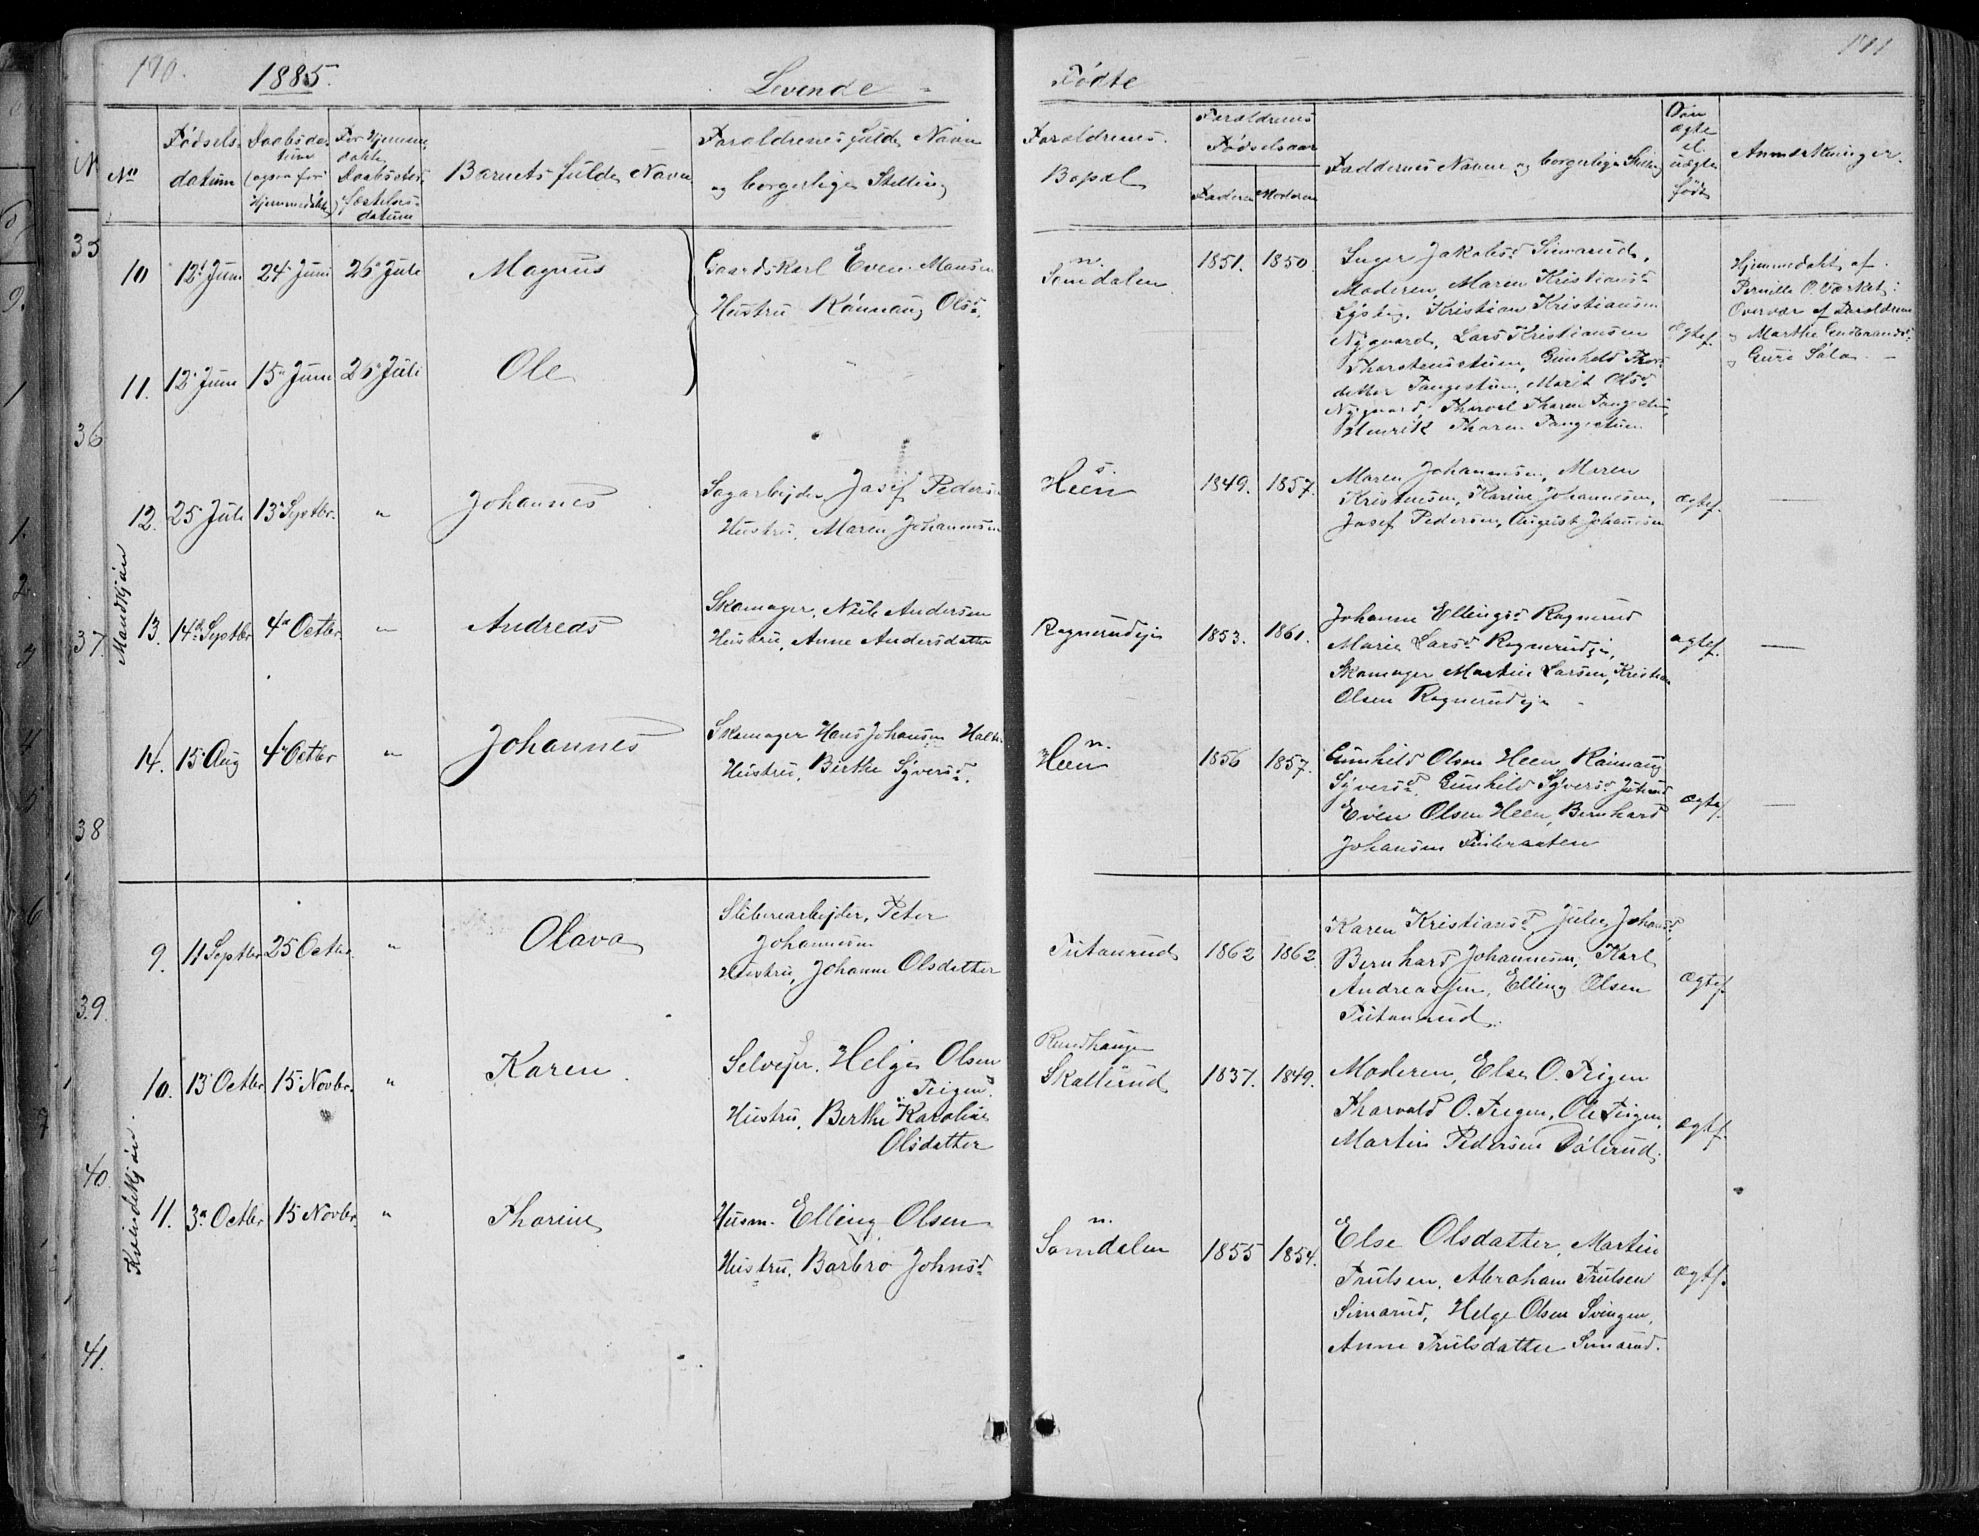 190.
1885.
Levende
Fødte
191
No
Fødsels-
datum
Daabsda-
tum
(ogsaa for
Hjemmedøbte)
For Hjemme-
døbte,
Daabssted,
Fæstelses-
datum
Barnets fulde Navn
Forældrenes fulde Navn
og borgerlige Stilling
Forældrenes
Bopæl
Forældrenes
Fødselsaar
Faderen
Moderen
Faddernes Navne og borgerlige Stilling
Om
ægte
el.
uægte
født
Anmærkninger.
Mandkjøn
10
12t Juni
24 Juni
26 Juli
Magnus
Gaardskarl Even Hansen
Hustru Rønnaug Olsd.
n.
Somdalen
1851.
1850.
Inger Jakobsd Simarud,
Moderen, Maren Kristiansd
Kristian Kristiansen
Nygaard, Lars Kristiansen
Thorstenstuen, Gunhild Thors-
detter Tangestuen, Marit Olsd
Nygaard, Thorvel Thoren Tangestu,
Henrik Thoren Tangestuen
ægtef.
Hjemmedøbt af
Pernille O. Værket i
Overvær af Forældrene
og Marthe Gudbrandsd
og Guri Søla. —
11.
12 Juni
15 Juni
26 Juli
Ole
12.
25 Juli
13 Septbr.
"
Johannes
Sagarbejder Josef Pedersen
Hustru, Maren Johannesen
s.
Heen
1849.
1857.
Maren Johannesen, Maren
Kristensen, Karine Johannesen,
Josef Pedersen, August Johansen
ægtef.
—
13.
14de Septbr
4de Octbr.
"
Andreas
Skomager, Niels Andersen
Hustru, Anne Andersdatter
Ragnerudeje
1853.
1861.
Johanne Ellingsd Ragnerud
Marie Larsd Ragnerudeje,
Skomager Martin Larsen, Kristian
Olsen Ragnerudeje
ægtef.
—
14.
15 Aug
4 Octbr
"
Johannes
Skomager Hans Johansen
Hustru, Berthe Syversd.
n.
Heen
1856
1857.
Gunhild Olsen Heen, Rønnaug
Syversd, Gunhild Syversd
Even Olsen Heen, Bernhard
Johansen
ægtef.
—
Kvindekjøn.
9.
11 Septbr
25 Octbr.
"
Olava
Sliberiarbejder, Peter
Johannesen
Hustru, Johanne Olsdatter
Tutanrud
1862
1862.
Karen Kristiansd, Julie Johansd,
Bernhard Johannesen, Karl
Andreassen, Elling Olsen
Tutanrud.
ægtef.
10.
13 Octbr
15 Novbr.
"
Karen
Selvejer. Helge Olsen
Teigen.
Hustru, Berthe Karoline
Olsdatter
Rundhaugen
Skallerud
1837.
1849.
Moderen, Else O. Teigen
Thorvald O. Teigen, Ole Teigen,
Martin Pedersen Dølerud.
ægtf.
11.
3 Octbr
15 Novbr.
"
Thorine
Husm. Elling Olsen
Hustru, Barbro Johnsd.
n.
Somdalen
1855
1854.
Else Olsdatter, Martin
Trulsen, Abraham Trulsen
Simarud, Helge Olsen Svingen,
Anne Trulsdatter Simarud.
ægtf.
35
36
37.
38
39.
40.
41.